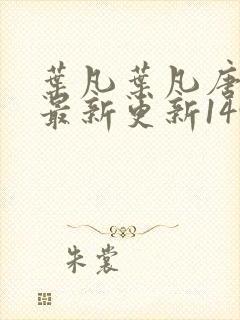 葉凡葉凡唐
最新更新14
朱裳